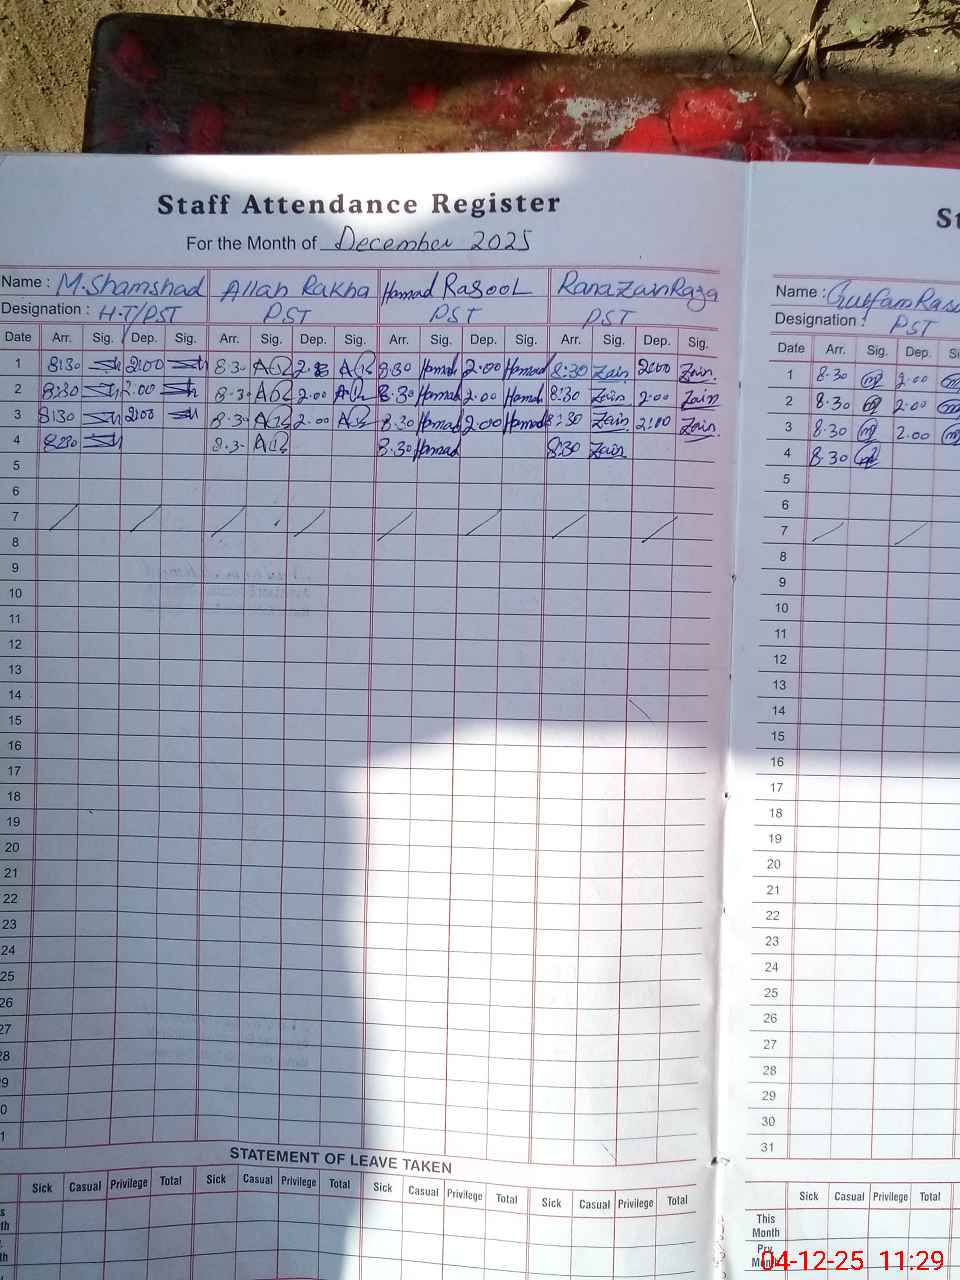 Staff Attendance Register
For the Month of December 2025
Name : M.Shamshad Allah Rakha Hamad Rasool Rana Zain Raza
Designation : H.T/PST PST PST PST
Date Arr. Sig. Dep. Sig. Arr. Sig. Dep. Sig. Arr. Sig. Dep. Sig. Arr. Sig. Dep. Sig.
1 8:30 2:00 8.30 8.30 Hamad 2.00 Hamad 8:30 Zain 2:00 Zain
2 8:30 2.00 8.30 2.00 8.30 Hamad 2.00 Hamad 8:30 Zain 2.00 Zain
3 8:30 2:00 8.30 2.00 8.30 Hamad 2.00 Hamad 8:30 Zain 2:00 Zain
4 8:30 8.30 8.30 Hamad 8:30 Zain
5
6
7
8
9
10
11
12
13
14
15
16
17
18
19
20
21
22
23
24
25
26
27
28
STATEMENT OF LEAVE TAKEN
Sick Casual Privilege Total Sick Casual Privilege Total Sick Casual Privilege Total Sick Casual Privilege Total
Name :
Designation : PST
Date Arr. Sig. Dep.
1 8.30 2.00
2 8.30 2.00
3 8.30 2.00
4 8.30
5
6
7
8
9
10
11
12
13
14
15
16
17
18
19
20
21
22
23
24
25
26
27
28
29
30
31
Sick Casual Privilege Total
This
Month
04-12-25 11:29